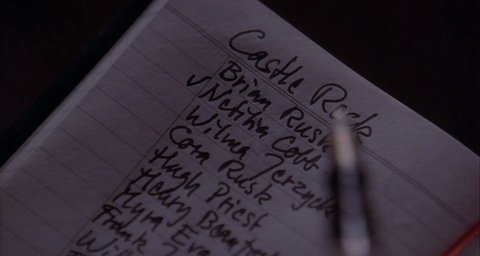 Castle Rock
Brian Rusk
✓ Netitia Cobb
Wilma Jerzyck
Cora Rusk
Hugh Priest
Henry Beaufort
Myra Eva
Frank J
Wi